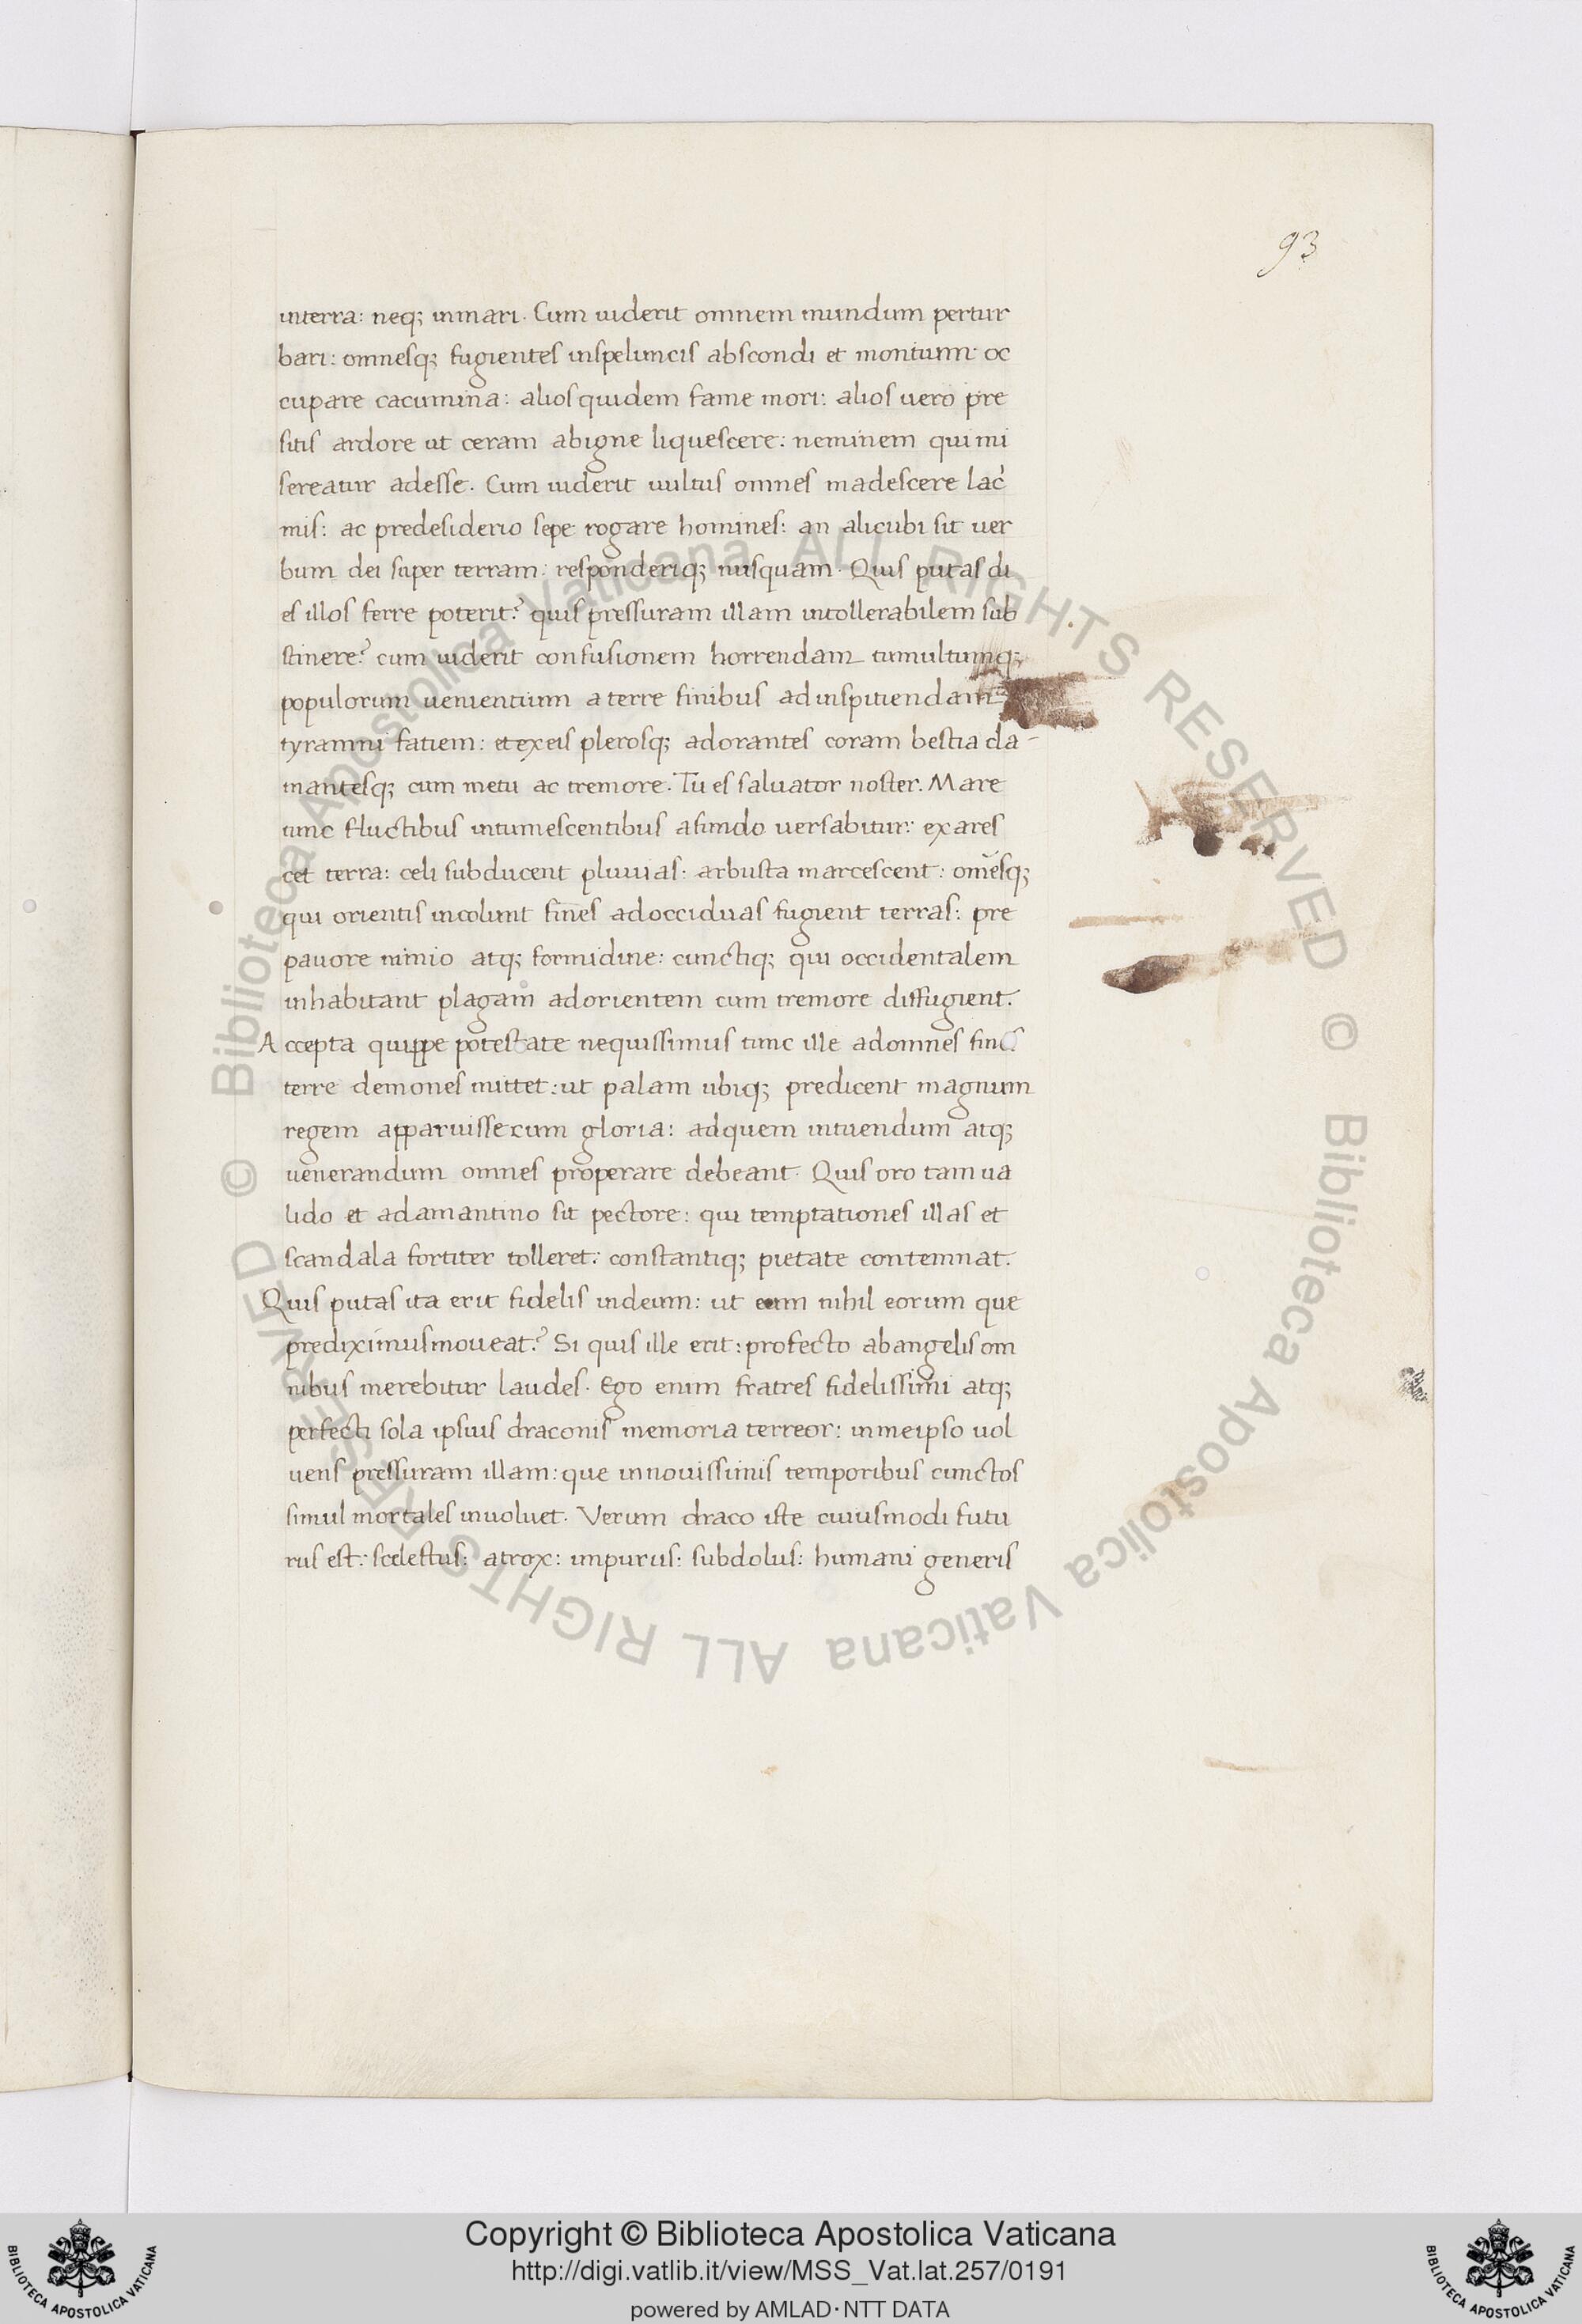 93
interra: neq; inmari. Cum uiderit omnem mundum pertur
bari: omnesq; fugientes inspeluncis abscondi et montium oc
cupare cacumina: alios quidem fame mori: alios uero pre
sitis ardore ut ceram abigne liquescere: neminem qui mi
sereatur adesse. Cum uiderit uultus omnes madescere lac̍
mis: ac predesiderio sepe rogare homines: an alicubi sit uer
bum dei super terram: responderiq; nusquam. Quis putas di
es illos ferre poterit? quis pressuram illam intollerabilem sub
stinere? cum uiderit confusionem horrendam tumultumq;
populorum uenientium a terre finibus ad inspitiendam
tyramni fatiem: et ex eis plerosq; adorantes coram bestia cla
mantesq; cum metu ac tremore. Tu es saluator noster. Mare
tunc fluctibus intumescentibus afundo uersabitur: exares
cet terra: celi subducent pluuias: arbusta marcescent: om̄esq;
qui orientis incolunt fines adocciduas fugient terras: pre
pauore nimio atq; formidine: cunctiq; qui occidentalem
inhabitant plagam adorientem cum tremore diffugient.
Accepta quippe potestate nequissimus tunc ille adomnes fines
terre demones mittet: ut palam ubiq; predicent magnum
regem apparuisse cum gloria: adquem intuendum atq;
uenerandum omnes properare debeant. Quis oro tam ua
lido et adamantino sit pectore: qui temptationes illas et
scandala fortiter tolleret: constantiq; pietate contemnat.
Quis putas ita erit fidelis indeum: ut eum nihil eorum que
prediximus moueat? Si quis ille erit: profecto abangelis om
nibus merebitur laudes. Ego enim fratres fidelissimi atq;
perfecti sola ipsius draconis memoria terreor: inmeipso uol
uens pressuram illam: que innouissimis temporibus cunctos
simul mortales inuoluet. Verum draco iste cuiusmodi futu
rus est: scelestus: atrox: impurus: subdolus: humani generis
© Biblioteca Apostolica Vaticana ALL RIGHTS RESERVED © Biblioteca Apostolica Vaticana ALL RIGHTS RESERVED
Copyright © Biblioteca Apostolica Vaticana
http://digi.vatlib.it/view/MSS_Vat.lat.257/0191
powered by AMLAD·NTT DATA
BIBLIOTECA APOSTOLICA VATICANA
BIBLIOTECA APOSTOLICA VATICANA